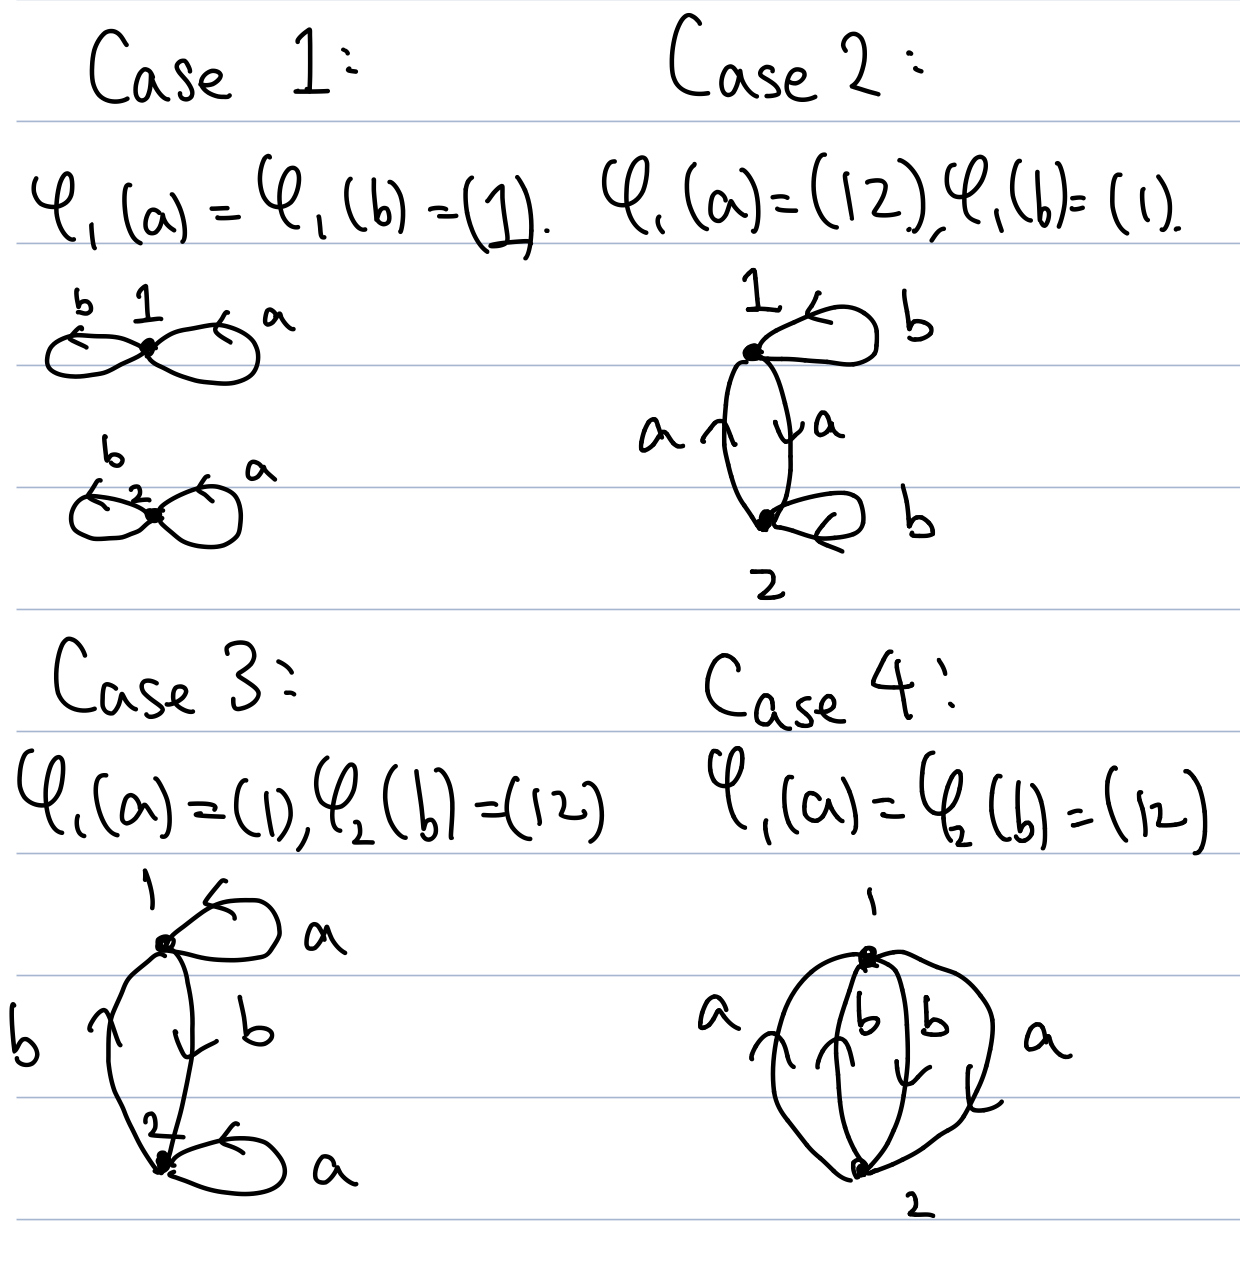 Case 1:
φ₁(a) = φ₁(b) = (1).
b 1 a
b 2 a
Case 2:
φ₁(a) = (12), φ₁(b) = (1).
1 b
a a
b
2
Case 3:
φ₁(a) = (1), φ₂(b) = (12)
1 a
b b
2 a
Case 4:
φ₁(a) = φ₂(b) = (12)
1
a b b a
2